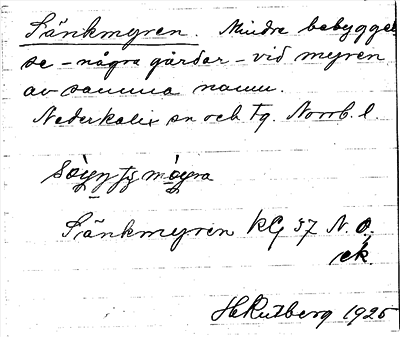 Sänkmyren. Mindre bebyggel-
se - några gårdar - vid myren
av samma namn.
Nederkalix sn och tg. Norrb. l.
Sänkmyren KG 57 N. O.
ek.
H. Rutberg 1925